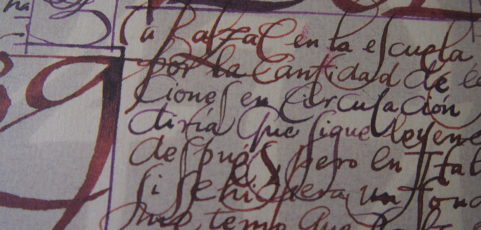 ña
a Balzac en la escuela
por la Cantidad de
ciones en Circulación
diría que sigue leyen
después, pero en Ital
si se hiciera un fond
me temo que